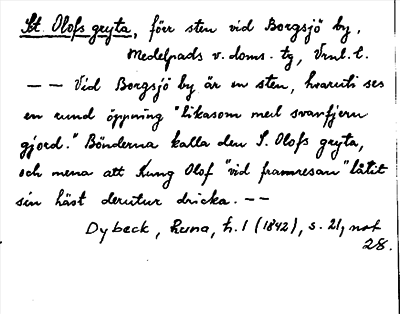 St. Olofs gryta, förr sten vid Borgsjö by,
Medelpads v. doms. tg, Vrnl. l.
— — Vid Borgsjö by är en sten, hvaruti ses
en rund öppning "likasom med svarfjern
gjord." Bönderna kalla den S. Olofs gryta,
och mena att Kung Olof "vid framresan" låtit
sin häst derutur dricka. — —
Dybeck, Runa, h. 1 (1842), s. 21, not
28.